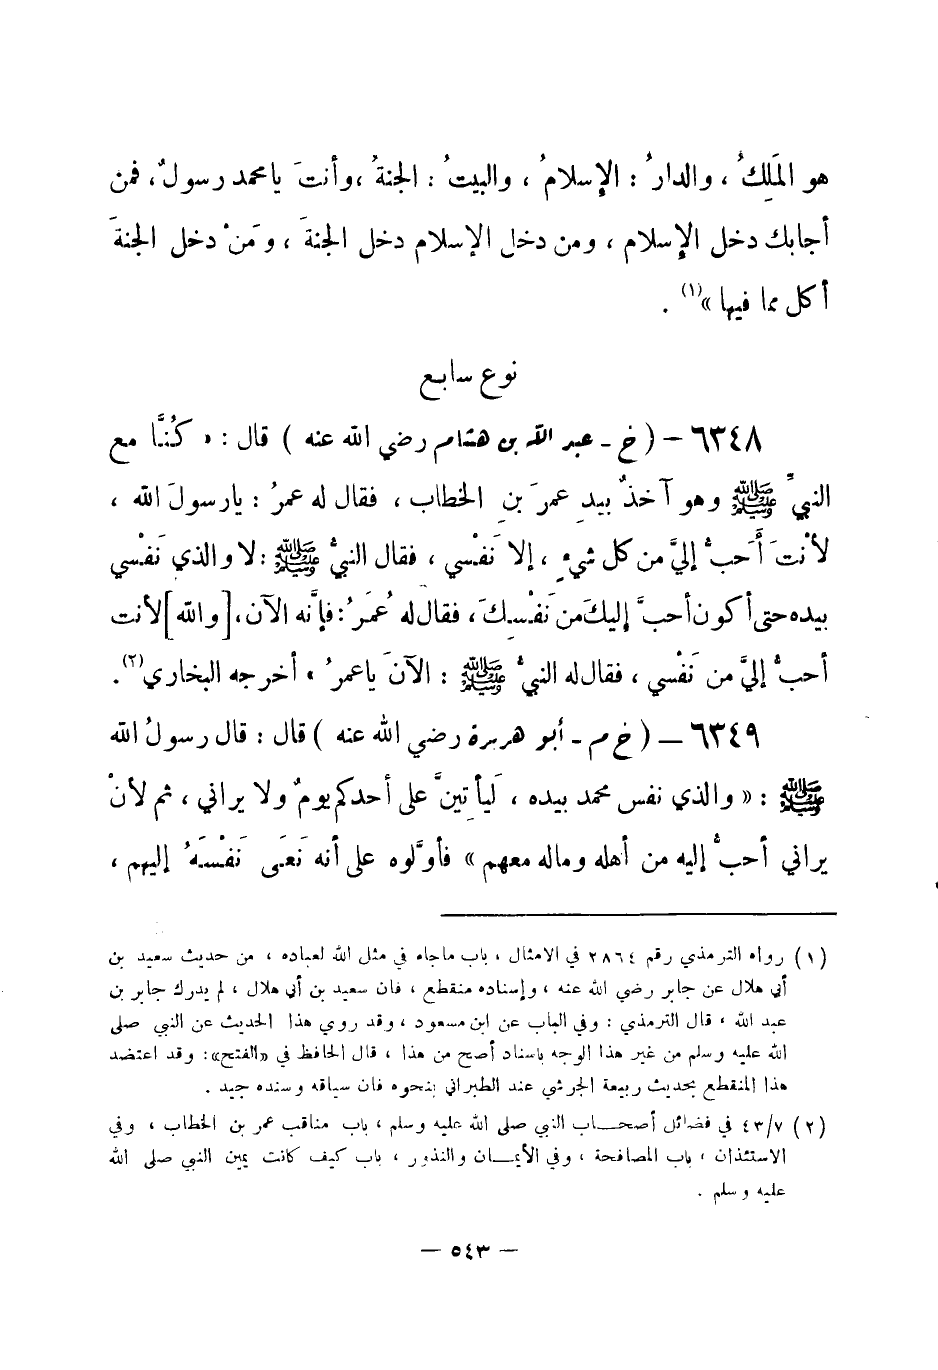 هو المَلِكُ ، والدارُ : الإسلامُ ، والبيتُ : الجنةُ ،وأنتَ يا محمد رسولٌ، فمن
أجابك دخل الإسلام ، ومن دخل الإسلام دخل الجنةَ ، ومَنْ دخل الجنةَ
أكل مما فيها »(١) .
نوع سابع
٦٣٤٨ – ( خ - عبد الله بن هشام رضي الله عنه ) قال : « كُنَّا مع
النبيِّ ﷺ وهو آخذٌ بيدِ عمرَ بنِ الخطاب ، فقال له عمرُ : يارسولَ الله ،
لأنْتَ أَحَبُّ إليَّ من كل شيءٍ ، إلا نَفْسي ، فقال النبيُّ ﷺ : لا والذي نَفْسي
بيده حتى أكون أحبَّ إليكَ من نَفْسِكَ ، فقال له عُمَرُ : فإنَّه الآن ، [والله] لأنت
أحبُّ إليَّ من نَفْسي ، فقال له النبيُّ ﷺ : الآنَ ياعمرُ » أخرجه البخاري(٢).
٦٣٤٩ – ( خ م - أبو هريرة رضي الله عنه ) قال : قال رسولُ الله
ﷺ : « والذي نفس محمد بيده ، لَيأتِينَّ على أحدكم يومٌ ولا يراني ، ثم لأنْ
يراني أحبُّ إليه من أهله وماله معهم » فأوَّلوه على أنه نَعَى نَفْسَهُ إليهم ،
(١) رواه الترمذي رقم ٢٨٦٤ في الامثال ، باب ماجاء في مثل الله لعباده ، من حديث سعيد بن
أبي هلال عن جابر رضي الله عنه ، وإسناده منقطع ، فان سعيد بن أبي هلال ، لم يدرك جابر بن
عبد الله ، قال الترمذي : وفي الباب عن ابن مسعود ، وقد روي هذا الحديث عن النبي صلى
الله عليه وسلم من غير هذا الوجه باسناد أصح من هذا ، قال الحافظ في «الفتح»: وقد اعتضد
هذا المنقطع بحديث ربيعة الجرشي عند الطبراني بنحوه فان سياقه وسنده جيد .
(٢) ٤٣/٧ في فضائل أصحـاب النبي صلى الله عليه وسلم ، باب مناقب عمر بن الخطاب ، وفي
الاستئذان ، باب المصافحة ، وفي الأيمـان والنذور ، باب كيف كانت يمين النبي صلى الله
عليه وسلم .
– ٥٤٣ –